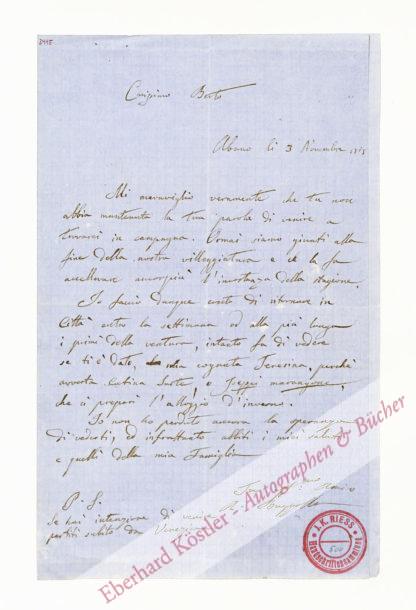 Abano li 3 Novembre
Mi maraviglio veramente che tu non
abbia mantenuta la tua parola di venire a
trovarci in campagna. Ormai siamo giunti alla
fine della nostra villeggiatura e ce la fa
accellerare ancorpiù l'incostanza della stagione.
Io faccio dunque conto di ritornare in
Città entro la settimana od alla più lunga
i primi della ventura, intanto fa di vedere
se ti è dato, mia cognata Teresina, perchè
avverta
che ci prepari l'alloggio d'inverno.
Io non ho perduto ancora la speranza
di vederti, ed infrattanto abbiti i miei saluti
e quelli della mia Famiglia
P. S.
Se hai intenzione di venire
partiti subito da Venezia
Eberhard Köstler - Autographen & Bücher
J. K. RIESS
Handschriftensammlung